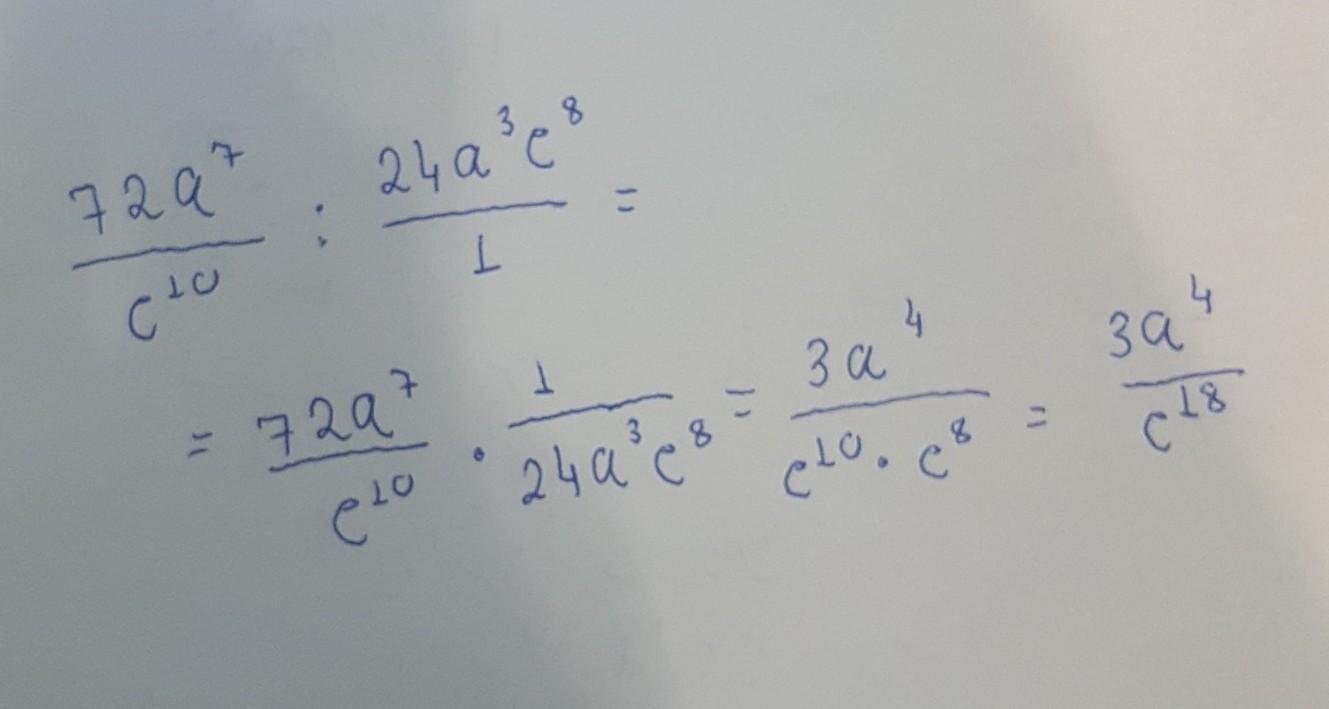 72a⁷/c¹⁰ : 24a³c⁸/1 =
= 72a⁷/c¹⁰ · 1/24a³c⁸ = 3a⁴/c¹⁰·c⁸ = 3a⁴/c¹⁸